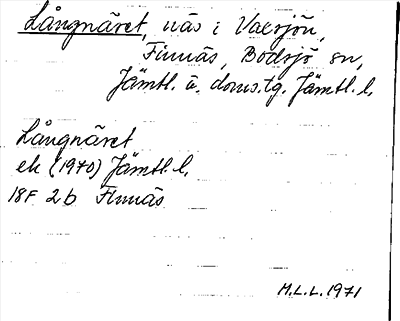 Långnäret, näs i Vaersjön,
Finnäs, Bodsjö sn,
Jämtl. ö. doms.tg. Jämtl. l.
Långnäret
ek (1970) Jämtl. l.
18F 2b Finnäs
M.L.L. 1971